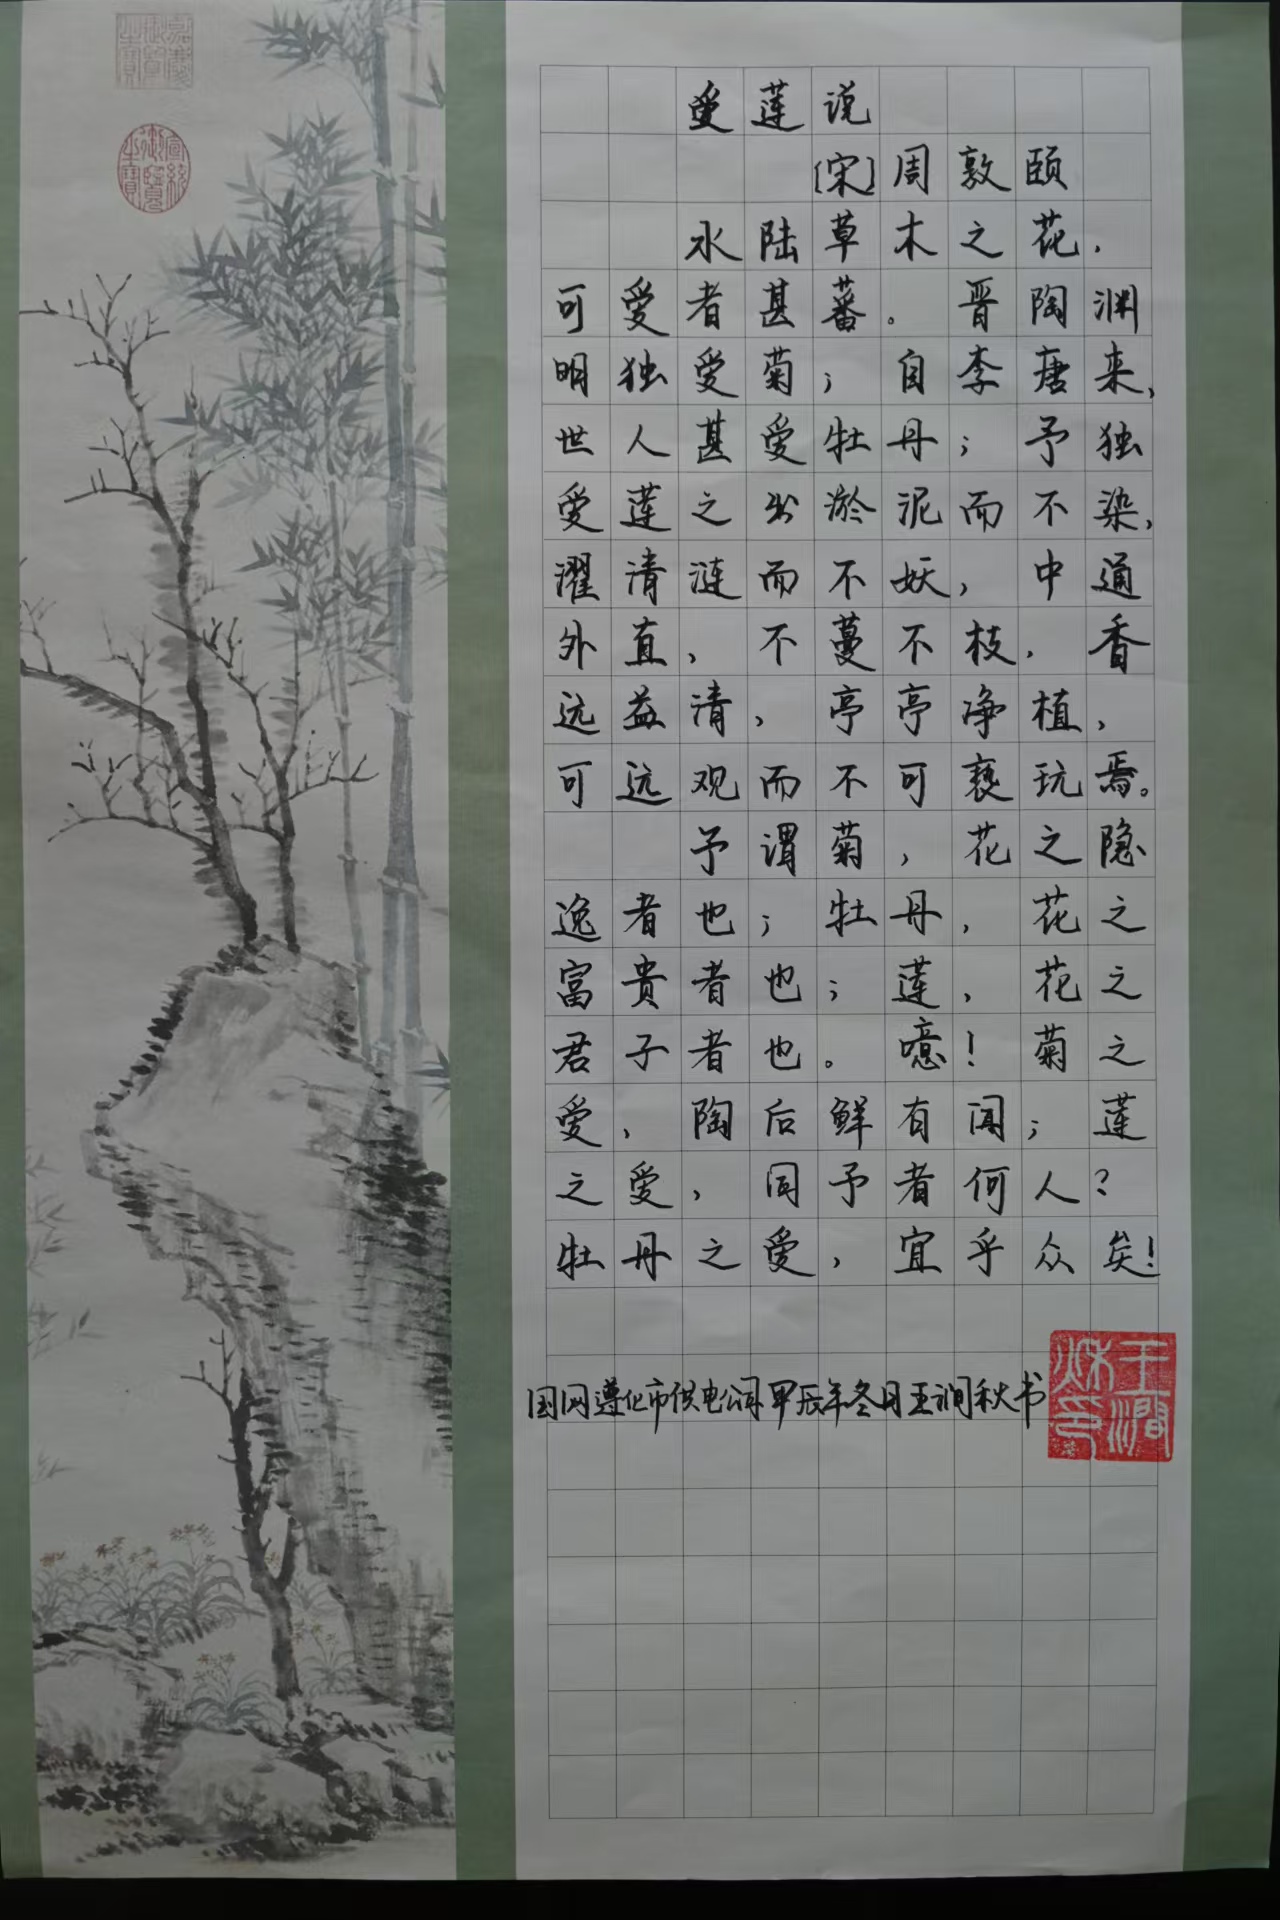 爱莲说
[宋]周敦颐
水陆草木之花,
可爱者甚蕃。晋陶渊
明独爱菊;自李唐来,
世人甚爱牡丹;予独
爱莲之出淤泥而不染,
濯清涟而不妖,中通
外直,不蔓不枝,香
远益清,亭亭净植,
可远观而不可亵玩焉。
予谓菊,花之隐
逸者也;牡丹,花之
富贵者也;莲,花之
君子者也。噫!菊之
爱,陶后鲜有闻;莲
之爱,同予者何人?
牡丹之爱,宜乎众矣!
国网遵化市供电公司甲辰年冬月王润秋书
嘉庆御览之宝
宣统御览之宝